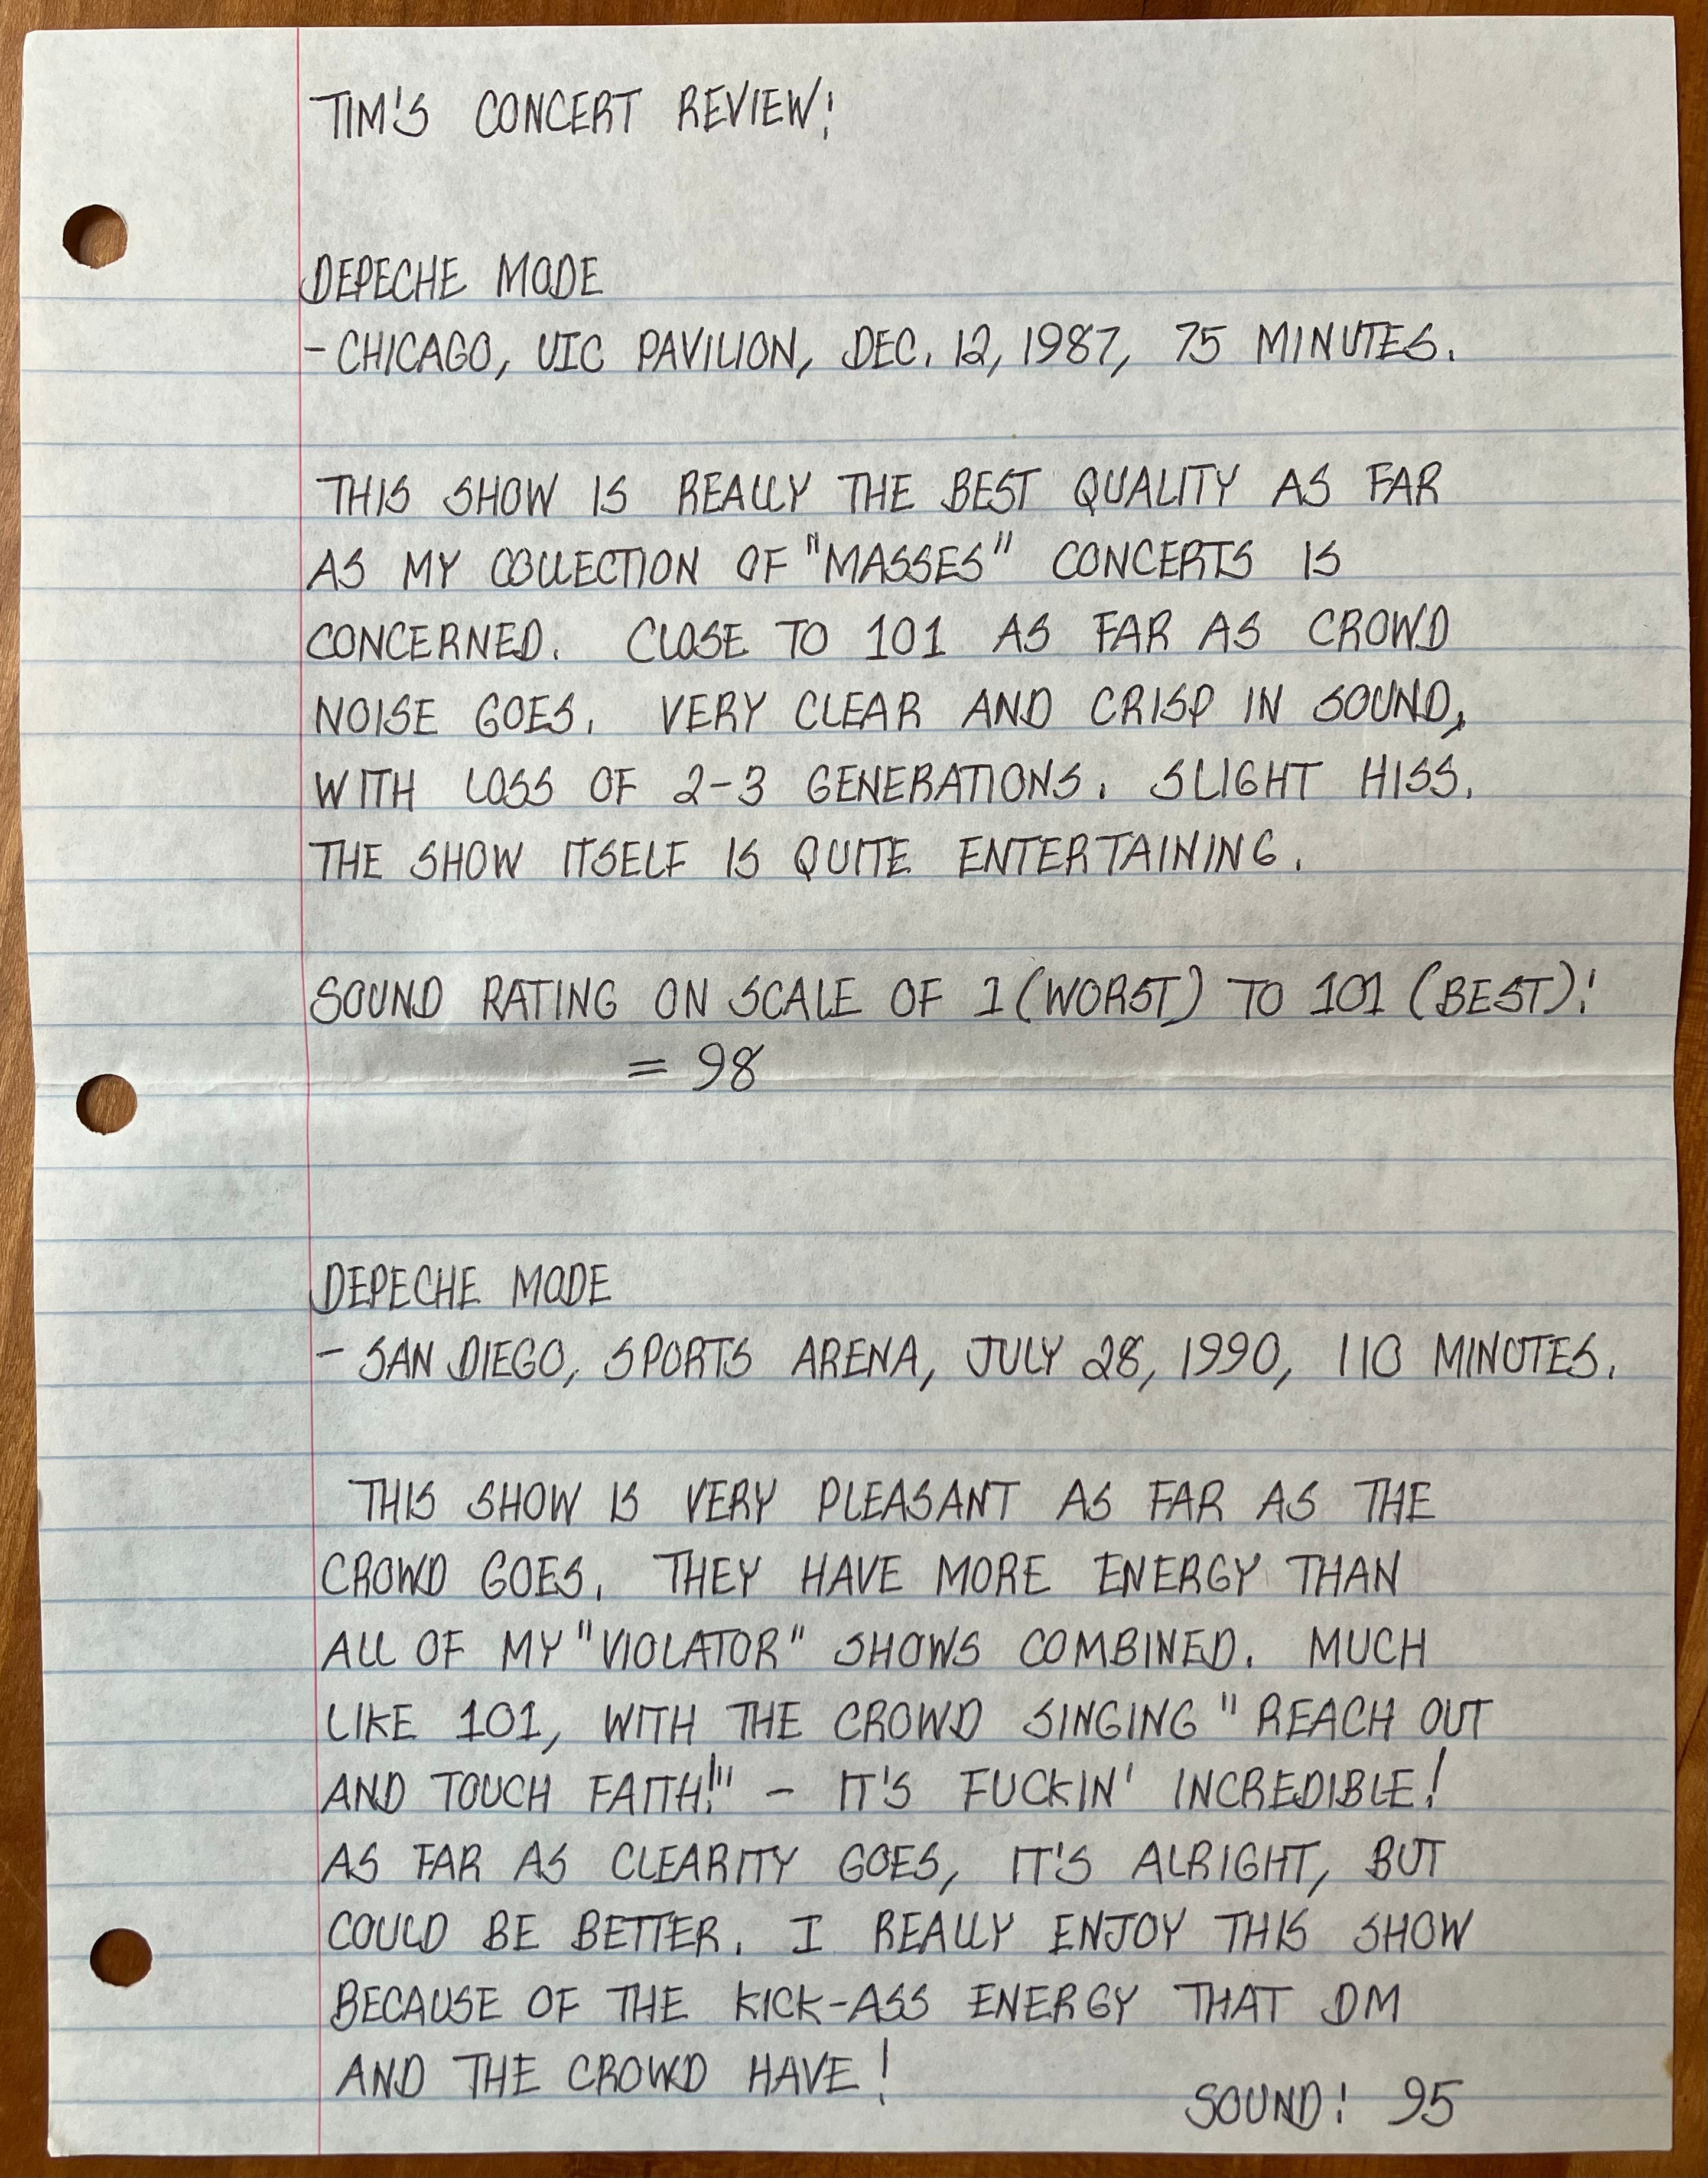 TIM'S CONCERT REVIEW!
DEPECHE MODE
- CHICAGO, UIC PAVILION, DEC. 12, 1987, 75 MINUTES.
THIS SHOW IS REALLY THE BEST QUALITY AS FAR
AS MY COLLECTION OF "MASSES" CONCERTS IS
CONCERNED. CLOSE TO 101 AS FAR AS CROWD
NOISE GOES. VERY CLEAR AND CRISP IN SOUND,
WITH LOSS OF 2-3 GENERATIONS. SLIGHT HISS.
THE SHOW ITSELF IS QUITE ENTERTAINING.
SOUND RATING ON SCALE OF 1 (WORST) TO 101 (BEST)!
= 98
DEPECHE MODE
- SAN DIEGO, SPORTS ARENA, JULY 28, 1990, 110 MINUTES.
THIS SHOW IS VERY PLEASANT AS FAR AS THE
CROWD GOES. THEY HAVE MORE ENERGY THAN
ALL OF MY "VIOLATOR" SHOWS COMBINED. MUCH
LIKE 101, WITH THE CROWD SINGING "REACH OUT
AND TOUCH FAITH!" - IT'S FUCKIN' INCREDIBLE!
AS FAR AS CLEARITY GOES, IT'S ALRIGHT, BUT
COULD BE BETTER. I REALLY ENJOY THIS SHOW
BECAUSE OF THE KICK-ASS ENERGY THAT DM
AND THE CROWD HAVE!
SOUND! 95